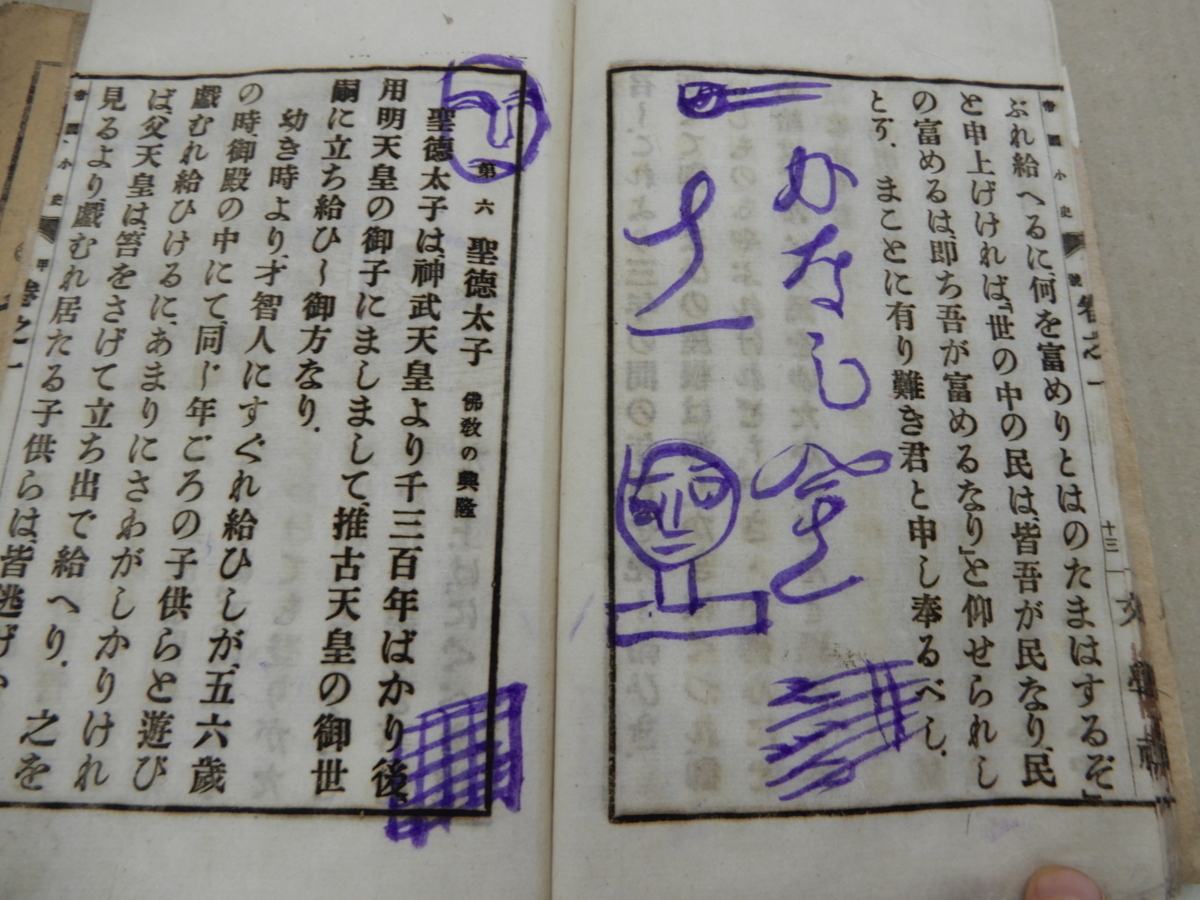 ぶれ給へるに、何を富めりとはのたまはするぞ」
と申上げければ、「世の中の民は、皆吾が民なり、民
の富めるは、即ち吾が富めるなり」と仰せられし
とぞ、まことに有り難き君と申し奉るべし。
かなし
第六 聖德太子 佛教の興隆
聖德太子は、神武天皇より千三百年ばかり後、
用明天皇の御子にましまして、推古天皇の御世
嗣に立ち給ひし御方なり。
幼き時より、才智人にすぐれ給ひしが、五六歲
の時、御殿の中にて、同じ年ごろの子供らと遊び
戲むれ給ひけるに、あまりにさわがしかりけれ
ば、父天皇は、笞をさげて立ち出で給へり。之を
見るより、戲むれ居たる子供らは、皆逃げ